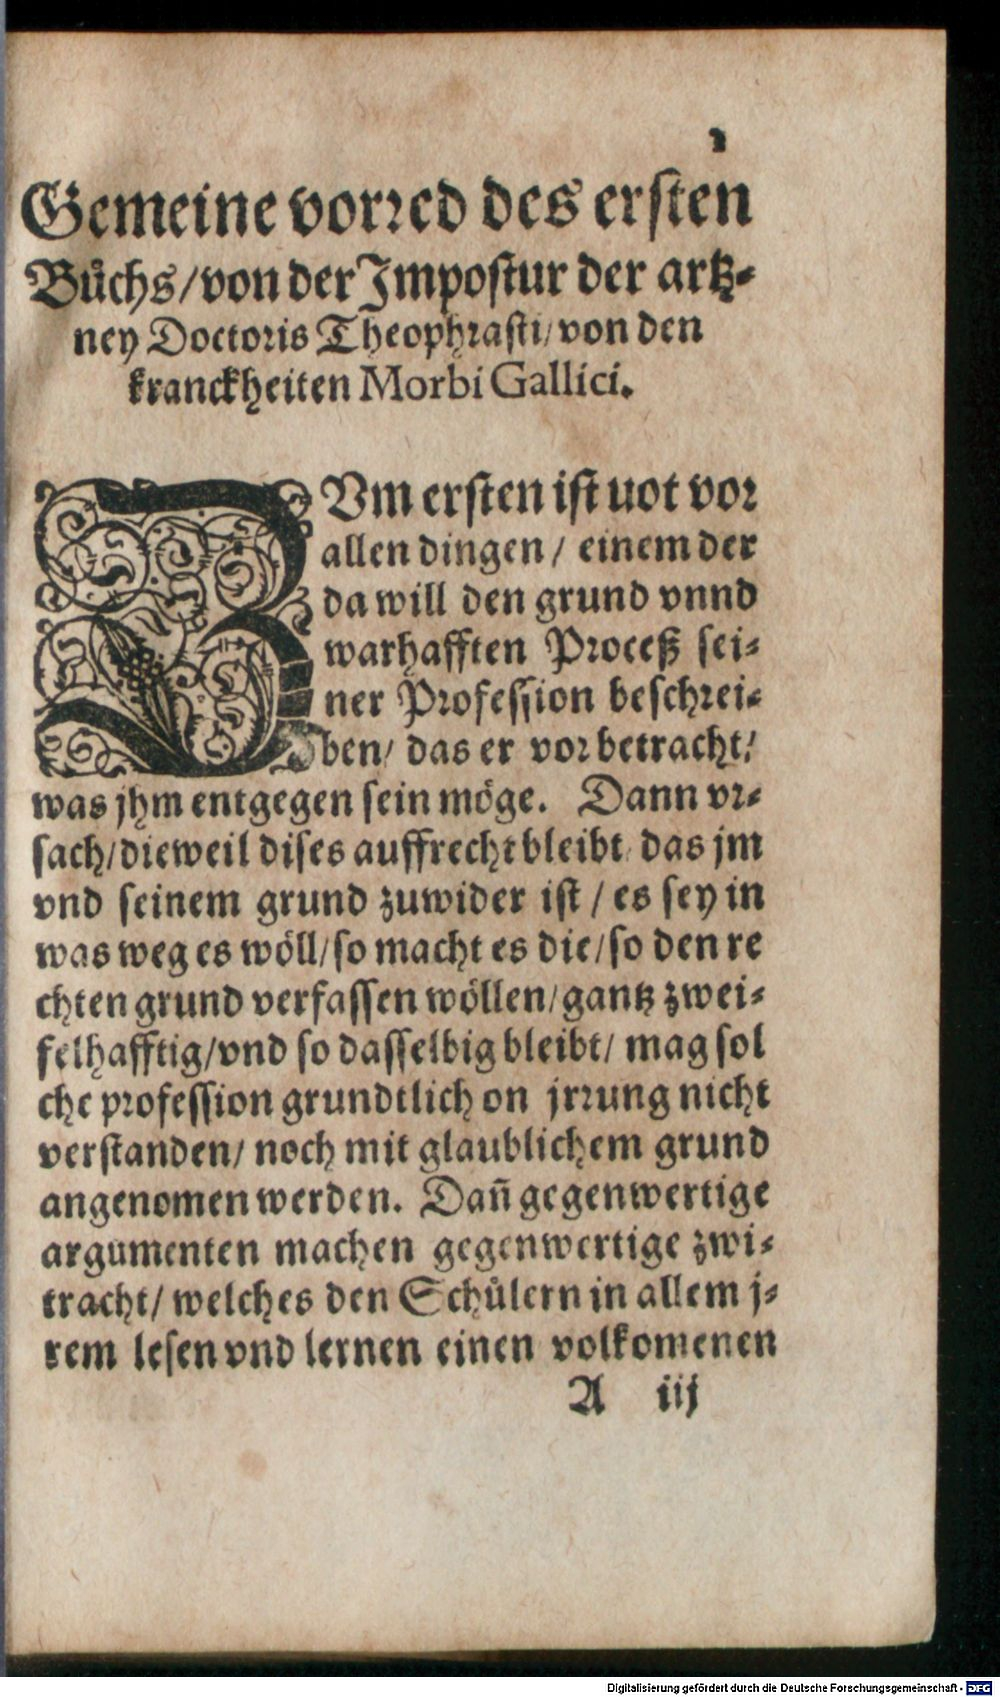 1
Gemeine vorred des ersten
Bůchs/von der Impostur der artz-
ney Doctoris Theophrasti/von den
kranckheiten Morbi Gallici.
ZVm ersten ist uot vor
allen dingen/ einem der
da will den grund vnnd
warhafften Proceß sei-
ner Profession beschrei-
ben/ das er vor betracht/
was jhm entgegen sein möge. Dann vr-
sach/dieweil dises auffrecht bleibt/ das jm
vnd seinem grund zuwider ist / es sey in
was weg es wöll/so macht es die/so den re
chten grund verfassen wöllen/gantz zwei-
felhafftig/vnd so dasselbig bleibt/ mag sol
che profession grundtlich on jrrung nicht
verstanden/ noch mit glaublichem grund
angenomen werden. Dañ gegenwertige
argumenten machen gegenwertige zwi-
tracht/ welches den Schůlern in allem j-
rem lesen vnd lernen einen volkomenen
A iij
Digitalisierung gefördert durch die Deutsche Forschungsgemeinschaft - DFG